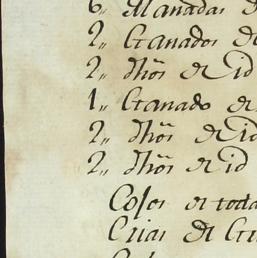 6,, Manadas d
2,, Granados de
2,, Dhos de id
1,, Granado de
2,, Dhos de id
2,, Dhos de id
Coles de toda
Crias de Gr